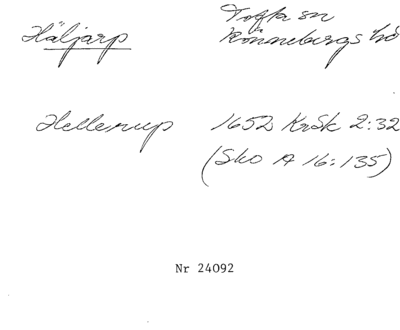 Häljarp
Tofta sn
Rönnebergs hd
Hellerup 1652 KrSk 2:32
(Sko A 16:135)
Nr 24092